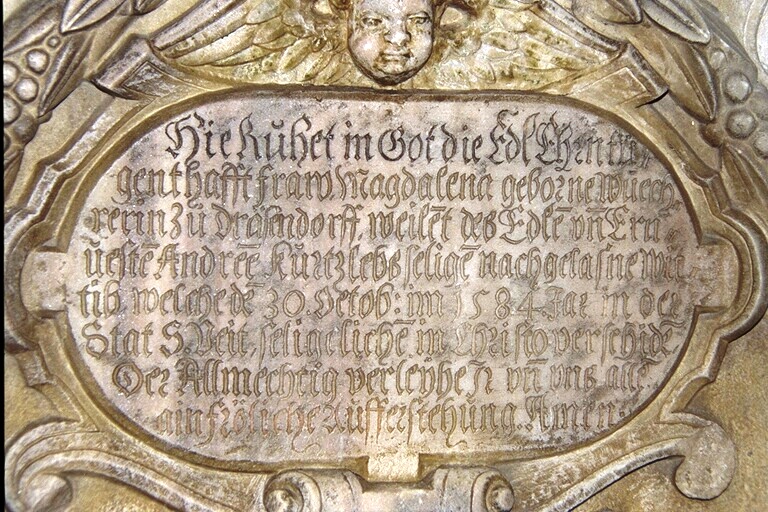 Hie Ruhet in Got die Edl Ehrn tu
genthafft fraw Magdalena geborne
rerin Zu Drasendorff weilēt des Edlē vn̄ Ern
uestē Andreē Kurtzlebs seligē nachgelasne wit
tib welche dē 30. Octob: im 1584 Jar in der
Stat S. Veit, seligelichē in Christo verschidē
Der Allmechtig verleyhe Jr vn̄ vns allē
ain fröliche Aufferstehung. Amen: